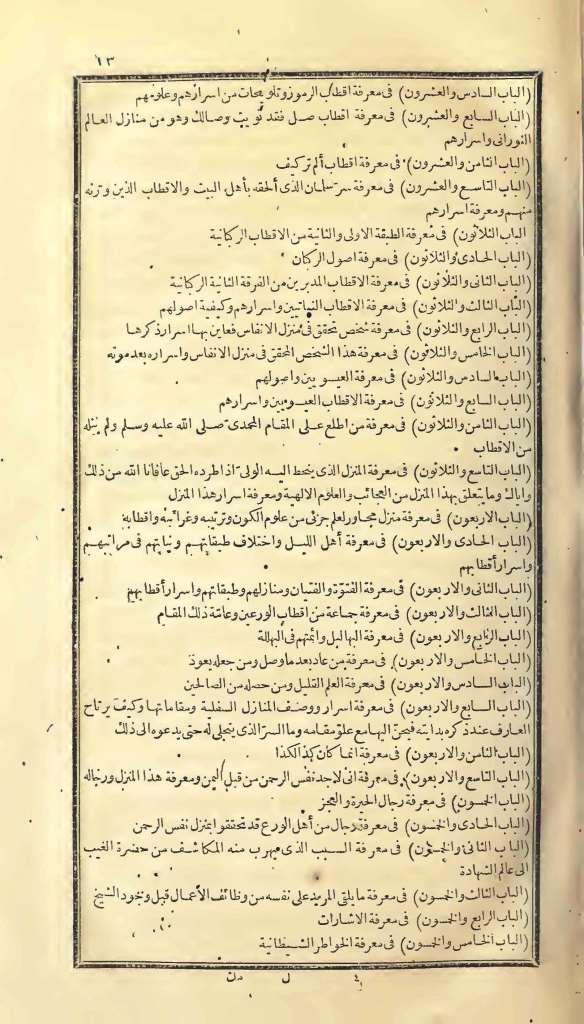 ١٣
(الباب السادس والعشرون) فى معرفة اقطاب الرموز وتلويحات من اسرارهم وعلومهم
(الباب السابع والعشرون) فى معرفة اقطاب صل فقد نويت وصالك وهو من منازل العالم
النورانى واسرارهم
(الباب الثامن والعشرون) فى معرفة اقطاب ألم تركيف
(الباب التاسع والعشرون) فى معرفة سر سلمان الذى ألحقه بأهل البيت والاقطاب الذين ورثه
منهم ومعرفة اسرارهم
(الباب الثلاثون) فى معرفة الطبقة الاولى والثانية من الاقطاب الركبانية
(الباب الحادى والثلاثون) فى معرفة اصول الركبان
(الباب الثانى والثلاثون) فى معرفة الاقطاب المدبرين من الفرقة الثانية الركبانية
(الباب الثالث والثلاثون) فى معرفة الاقطاب النياتيين واسرارهم وكيفية اصولهم
(الباب الرابع والثلاثون) فى معرفة شخص تحقق فى منزل الانفاس فعاين بها اسرار ذكرها
(الباب الخامس والثلاثون) فى معرفة هذا الشخص المحقق فى منزل الانفاس واسراره بعد موته
(الباب السادس والثلاثون) فى معرفة العيسويين واصولهم
(الباب السابع والثلاثون) فى معرفة الاقطاب العيسويين واسرارهم
(الباب الثامن والثلاثون) فى معرفة من اطلع على المقام المحمدى صلى الله عليه وسلم ولم ينله
من الاقطاب
(الباب التاسع والثلاثون) فى معرفة المنزل الذى ينحط اليه الولى اذا طرده الحق عافانا الله من ذلك
واياك وما يتعلق بهذا المنزل من العجائب والعلوم الالهية ومعرفة اسرار هذا المنزل
(الباب الاربعون) فى معرفة منزل مجاور لعلم جزئى من علوم الكون وترتيبه وغرائبه واقطابه
(الباب الحادى والاربعون) فى معرفة أهل الليل واختلاف طبقاتهم ونياتهم فى مراتبهم
واسرار أقطابهم
(الباب الثانى والاربعون) فى معرفة الفتوّة والفتيان ومنازلهم وطبقاتهم واسرار أقطابهم
(الباب الثالث والاربعون) فى معرفة جماعة من اقطاب الورعين وعامّة ذلك المقام
(الباب الرابع والاربعون) فى معرفة البهاليل وائمتهم فى البهللة
(الباب الخامس والاربعون) فى معرفة من عاد بعد ما وصل ومن جعله يعود
(الباب السادس والاربعون) فى معرفة العلم القليل ومن حصله من الصالحين
(الباب السابع والاربعون) فى معرفة اسرار ووصف المنازل السفلية ومقاماتها وكيف يرتاح
العارف عند ذكره بدايته فيحنّ اليها مع علوّ مقامه وما السرّ الذى يتجلى له حتى يدعوه الى ذلك
(الباب الثامن والاربعون) فى معرفة انما كان كذا لكذا
(الباب التاسع والاربعون) فى معرفة انى لاجد نفس الرحمن من قبل اليمن ومعرفة هذا المنزل ورجاله
(الباب الخمسون) فى معرفة رجال الحيرة والعجز
(الباب الحادى والخمسون) فى معرفة رجال من أهل الورع قد تحققوا بمنزل نفس الرحمن
(الباب الثانى والخمسون) فى معرفة السبب الذى يهرب منه المكاشف من حضرة الغيب
الى عالم الشهادة
(الباب الثالث والخمسون) فى معرفة ما يلقى المريد على نفسه من وظائف الأعمال قبل وجود الشيخ
(الباب الرابع والخمسون) فى معرفة الاشارات
(الباب الخامس والخمسون) فى معرفة الخواطر الشيطانية
٤ ل مت